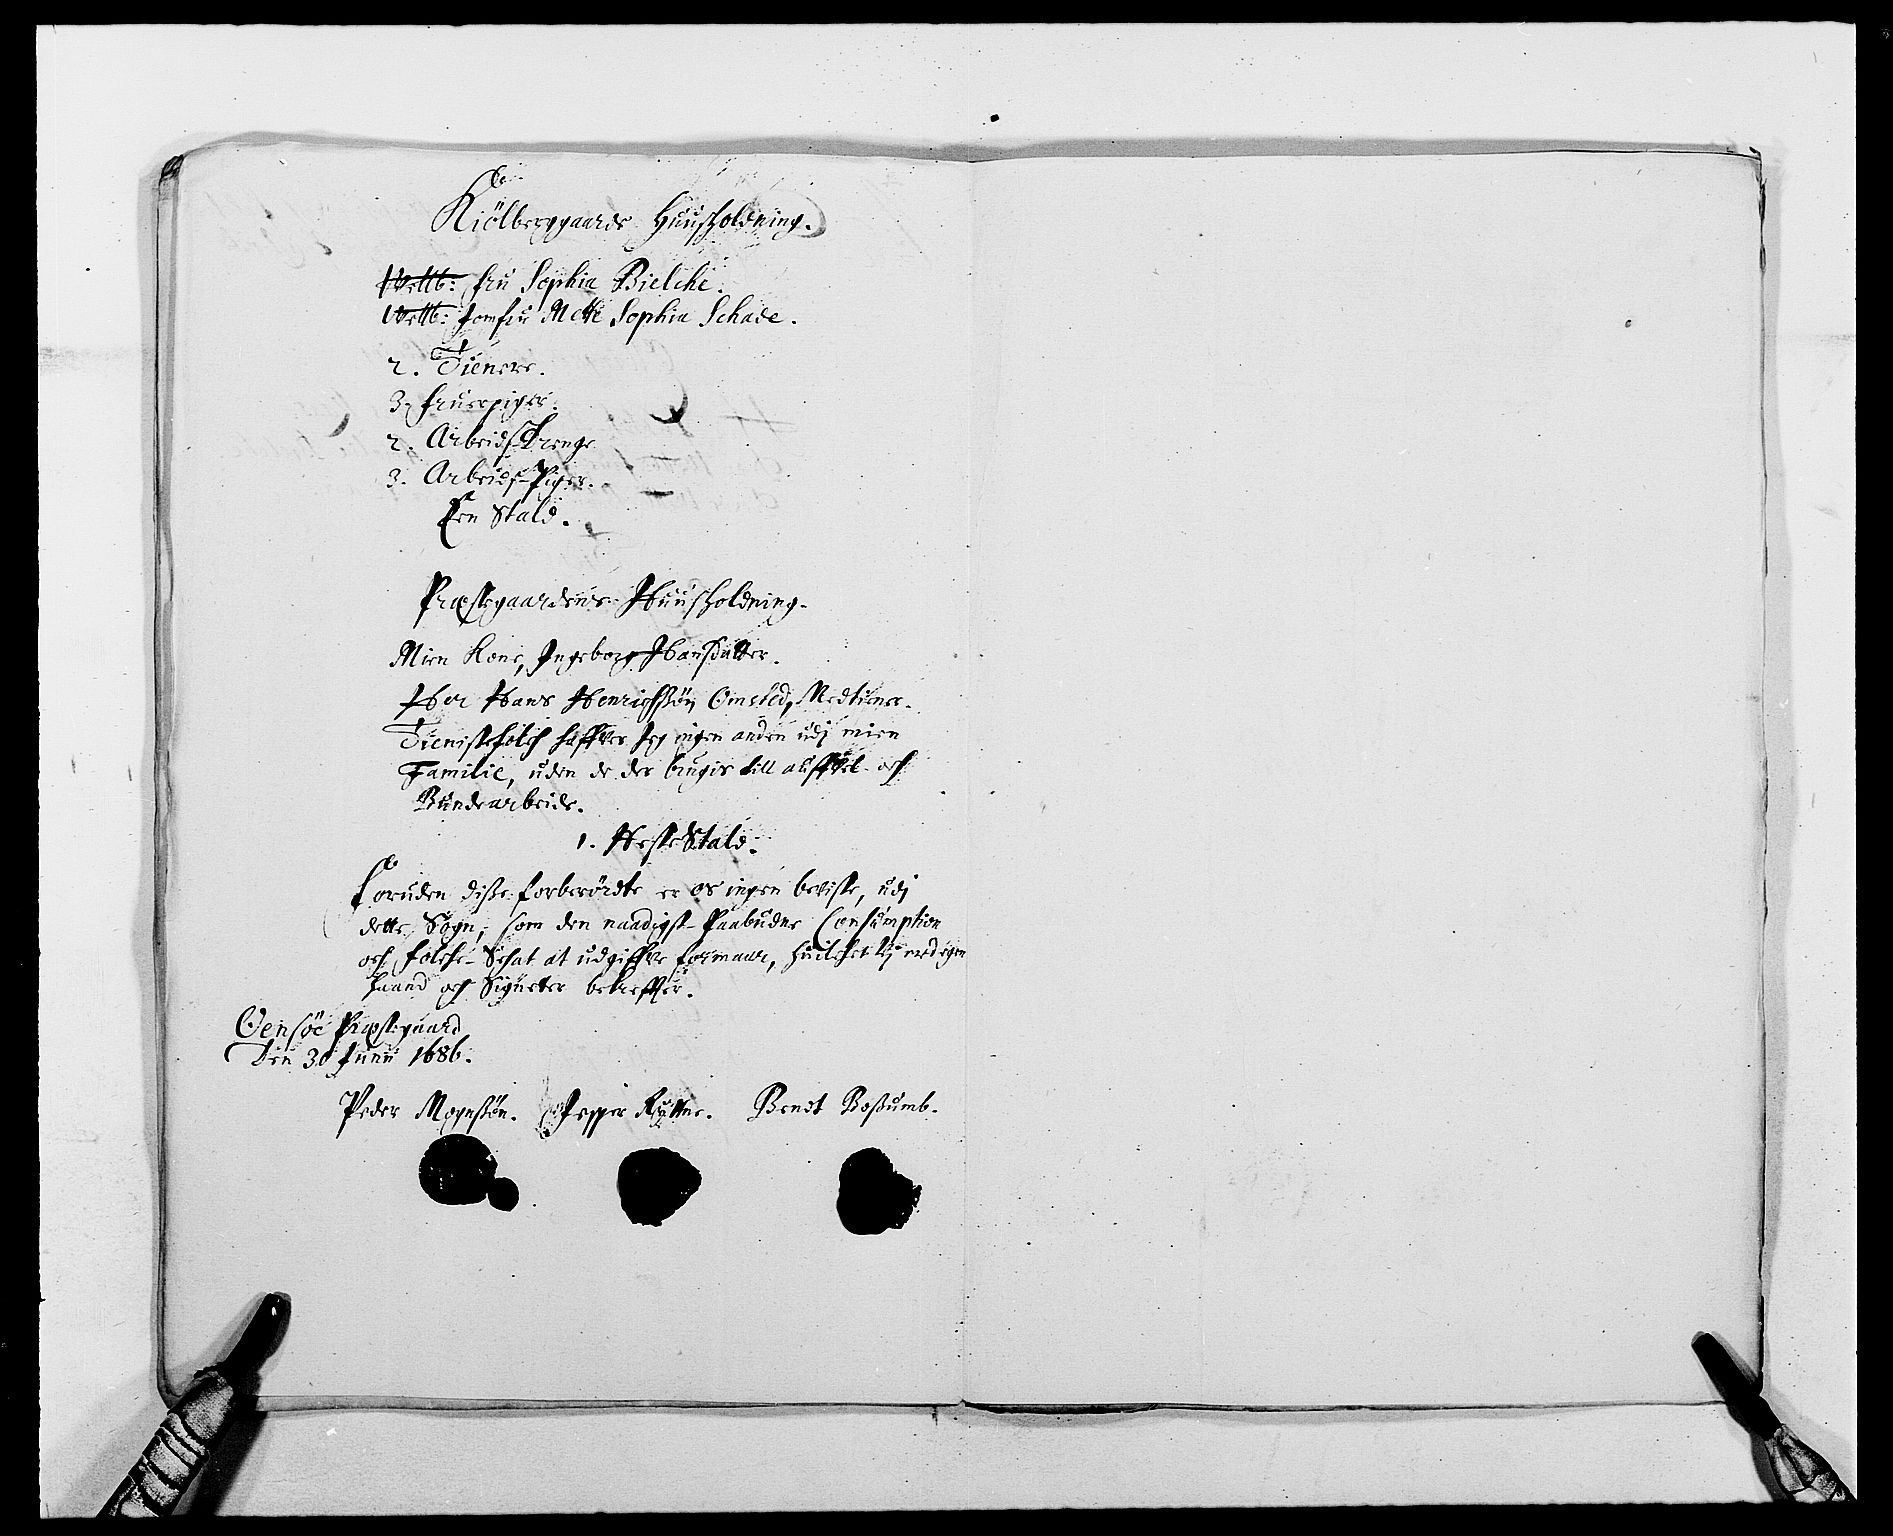 Kiölberggaards Huusholdning.
Welb: fru Sophia Bielche.
Welb: Jomfru Mette Sophia Schade.
2. Tienere.
3. fruerpiger.
2. Arbeids-Drenge
3. Arbeids-Piger.
Een Stald.
Præstegaardens Huusholdning.
Mien Kone, Ingeborg Hansdatter.
Her Hans Henrichssøn Omsted, Medtiener.
Tienistefolch haffver Jeg ingen anden udj mien
Familie, uden de der brugis till aufffvel och
Bundearbeide.
1. HesteStald.
Foruden disse forberördte er os ingen beviste, udj
dette Sogn, som den naadigst Paabudne Consumption
och folche-Schat at udgiffve formaar, huilchet Vj med egen
haand och Signeter bekreffter.
Oensöe Præstegaard
Den 30 Junii 1686.
Peder Mognssøn. Jesper Rytter. Bendt Bossumb.